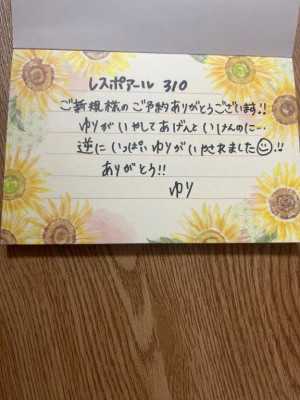 レスポアール 310
ご新規様のご予約ありがとうございます!!
ゆりがいやしてあげんといけんのに…
逆にいっぱいゆりがいやされました☺!!
ありがとう!!
ゆり